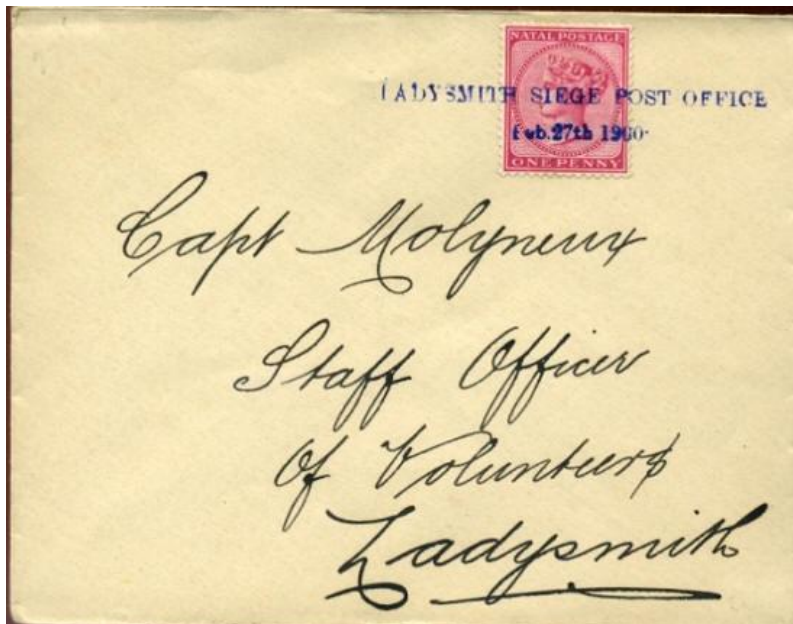 NATAL POSTAGE
LADYSMITH SIEGE POST OFFICE
Feb.27th 1900.
ONE PENNY
Capt Molyneux
Staff Officer
Of Volunteers
Ladysmith